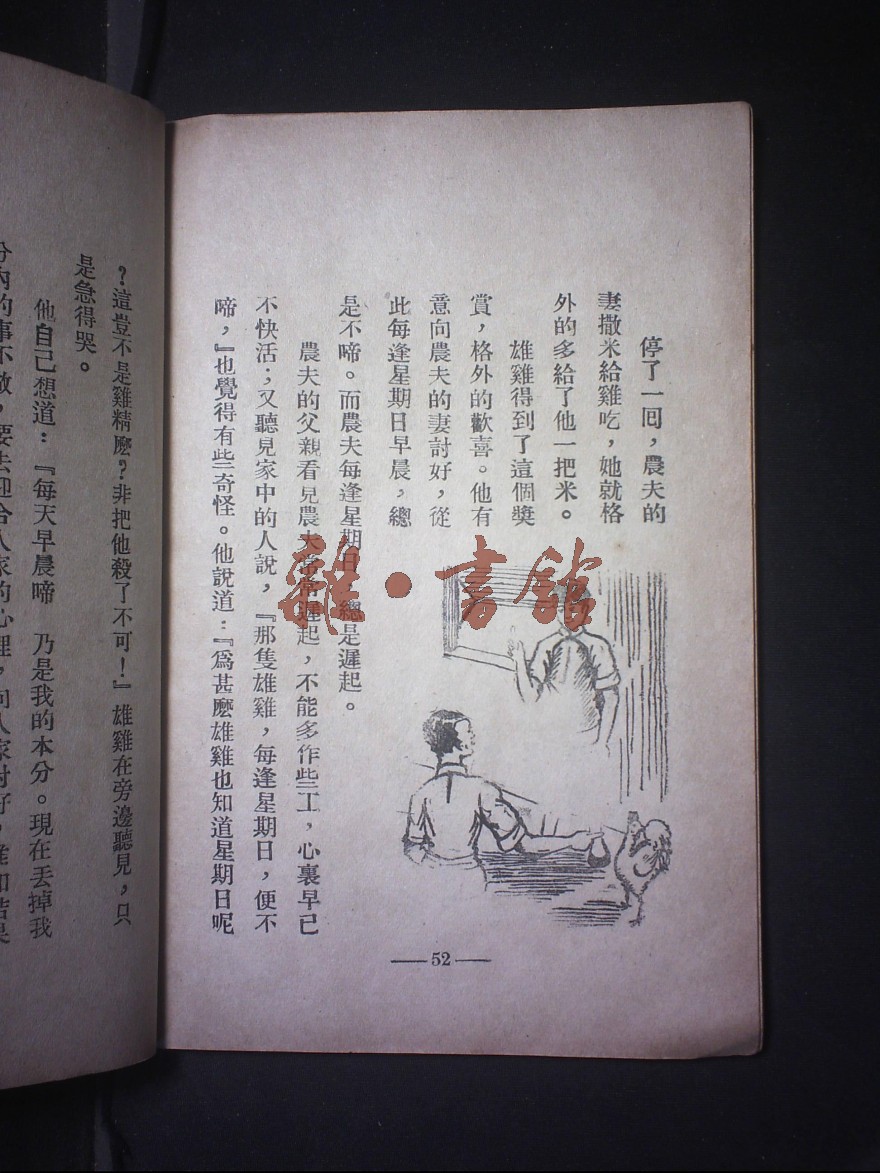 停了一囘，農夫的
妻撒米給雞吃，她就格
外的多給了他一把米。
雄雞得到了這個獎
賞，格外的歡喜。他有
意向農夫的妻討好，從
此每逢星期日早晨，總
是不啼。而農夫每逢星期日，總是遲起。
農夫的父親看見農夫常常遲起，不能多作些工，心裏早已
不快活；又聽見家中的人說，『那隻雄雞，每逢星期日，便不
啼，』也覺得有些奇怪。他說道：『爲甚麽雄雞也知道星期日呢
52
？這豈不是雞精麽？非把他殺了不可！』雄雞在旁邊聽見，只
是急得哭。
他自己想道：『每天早晨啼 乃是我的本分。現在丟掉我
分內的事不做，要去迎合人家的心理，向人家討好，
雜·書館